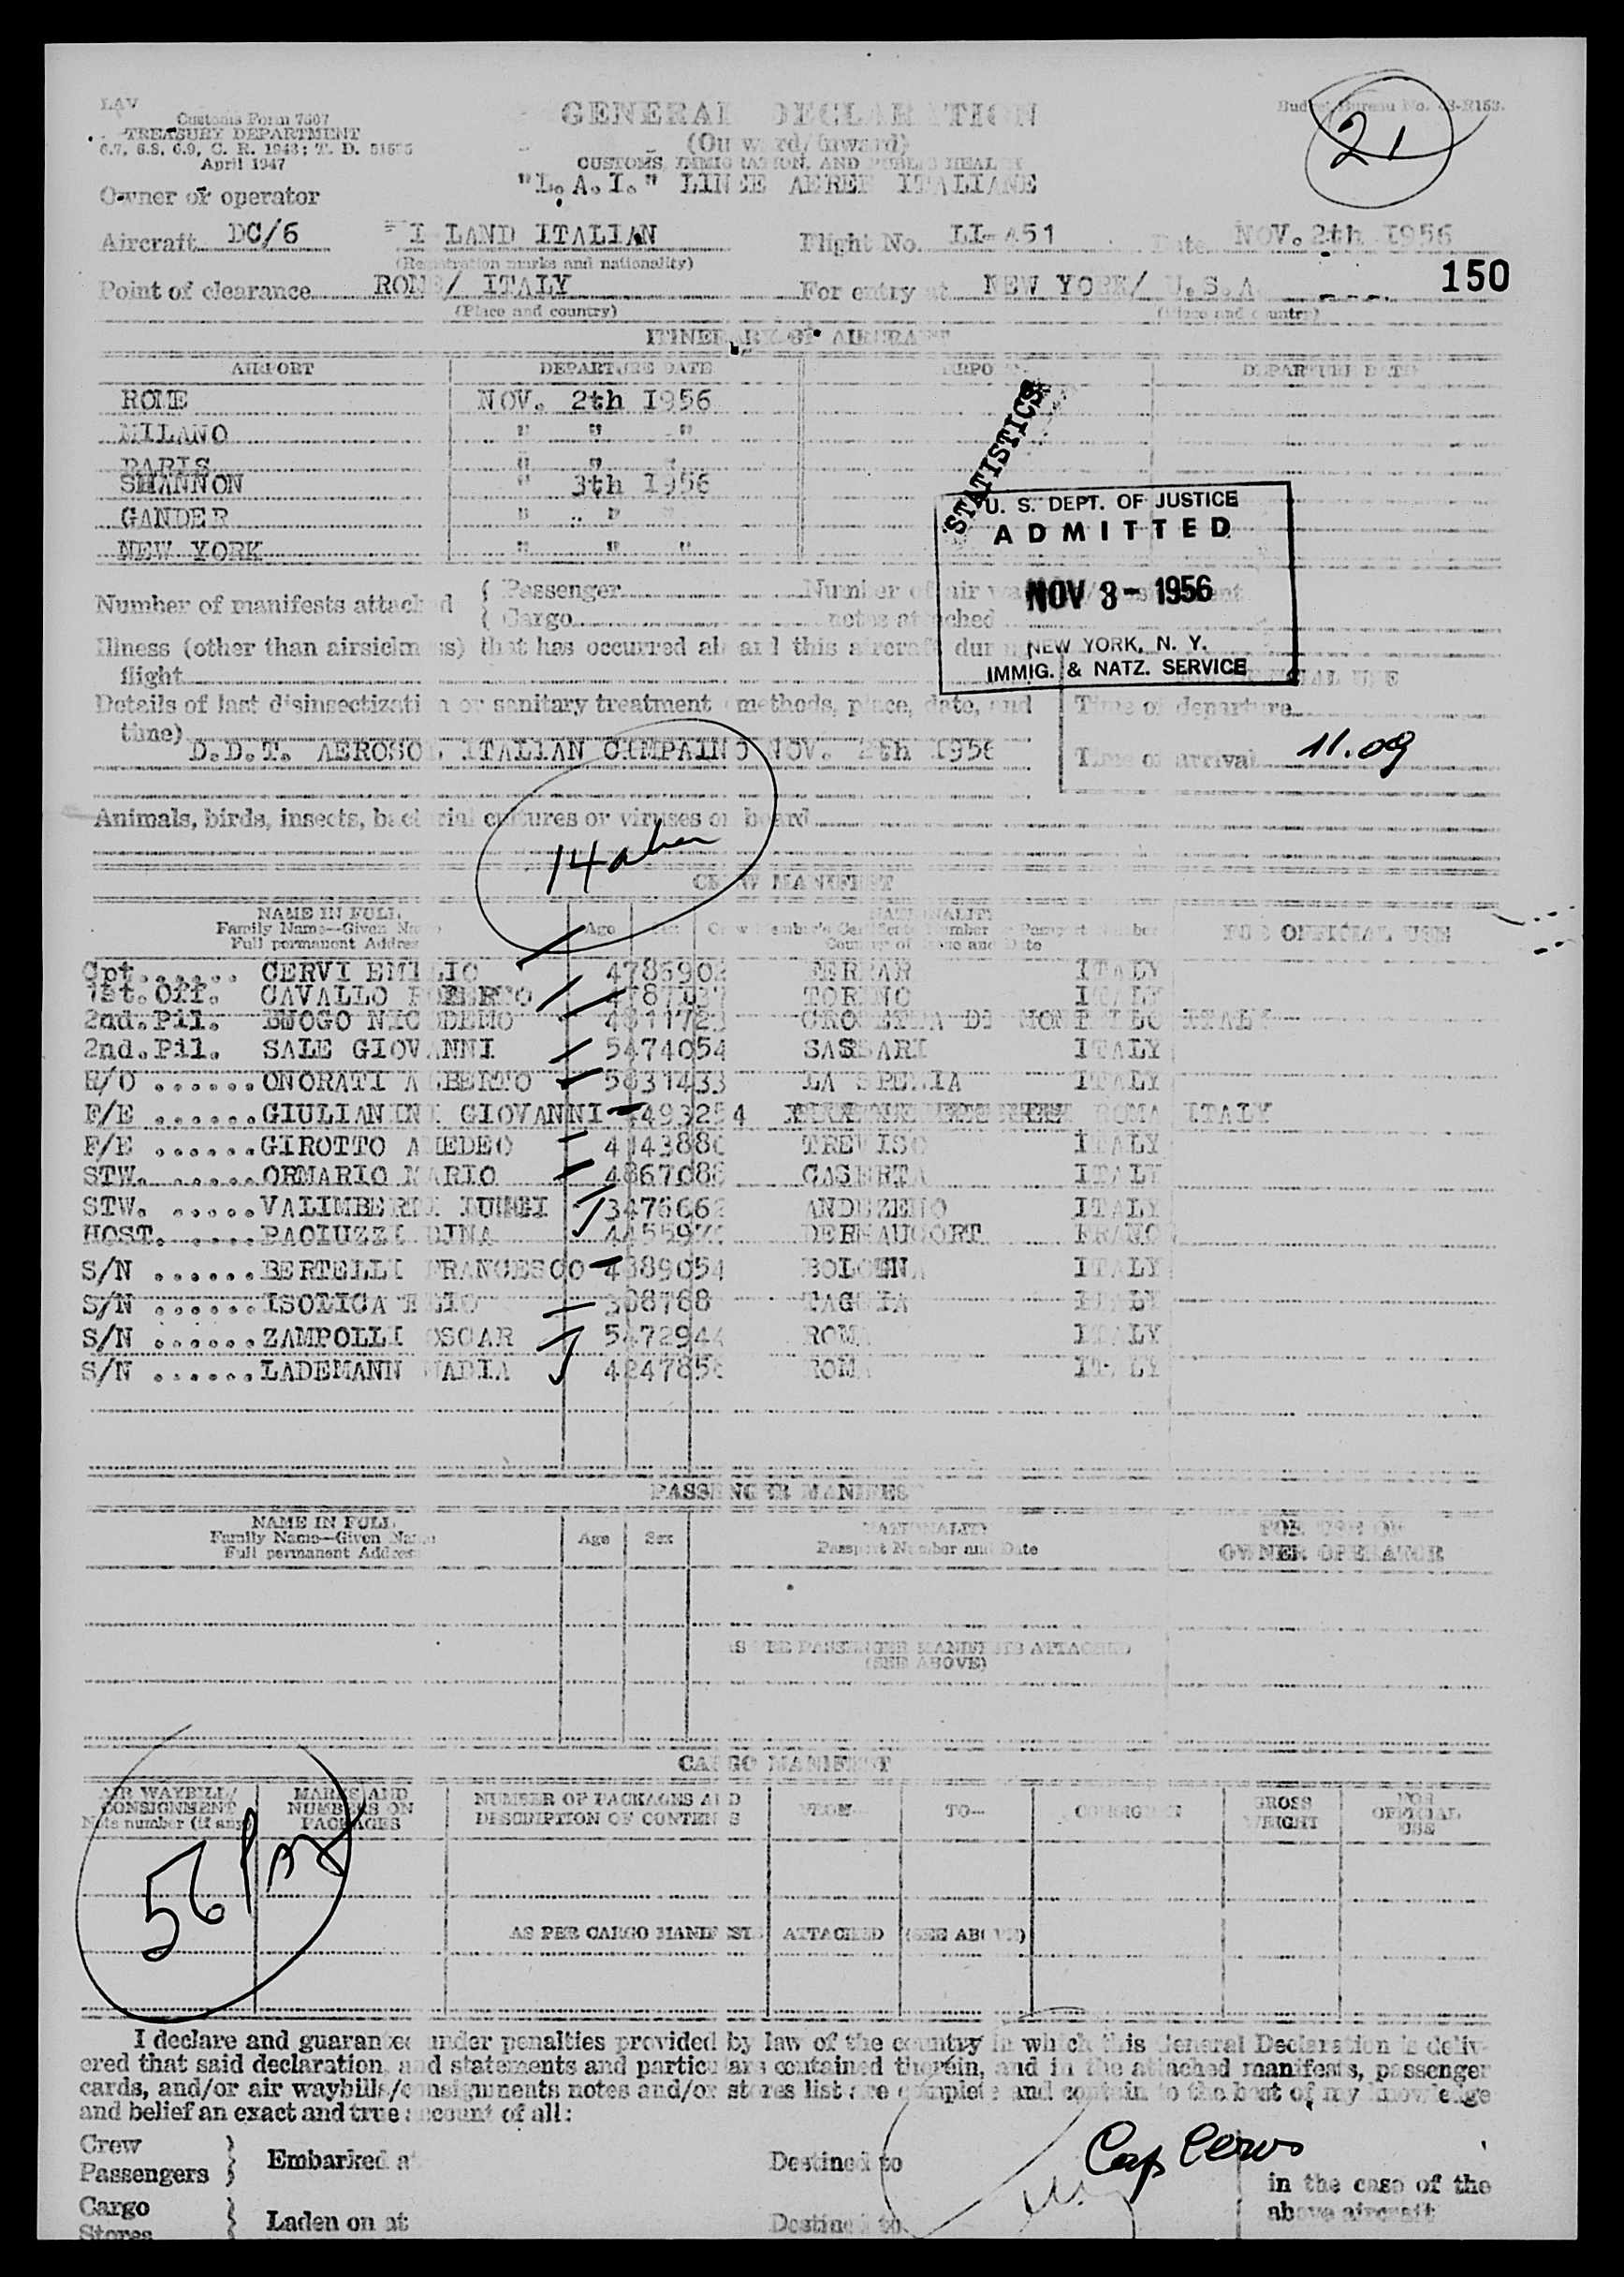 LAV
Customs Form 7507
TREASURY DEPARTMENT
6.7, 6.8, 6.9, C. R. 1943; T. D.
April 1947
GENERAL DECLARATION
(Outward/Inward)
CUSTOMS, IMMIGRATION, AND PUBLIC HEALTH
Budget Bureau No.
21
Owner or operator "L.A.I." LINEE AEREE ITALIANE
Aircraft DC/6 LAND ITALIAN Flight No. LI-451 Date NOV. 2th 1956
(Registration marks and nationality)
150
Point of clearance ROME/ ITALY For entry at NEW YORK/ U.S.A
(Place and country) (Place and country)
ITINERARY OF AIRCRAFT
AIRPORT DEPARTURE DATE AIRPORT DEPARTURE DATE
ROME NOV. 2th 1956
MILANO " " "
PARIS " " "
SHANNON " 3th 1956
GANDER " " "
NEW YORK " " "
STATISTICS
U. S. DEPT. OF JUSTICE
ADMITTED
NOV 3 - 1956
NEW YORK, N. Y.
IMMIG. & NATZ. SERVICE
Number of manifests attached { Passenger Number of air
{ Cargo notes attached
Illness (other than airsickness) that has occurred aboard this aircraft during
flight
OFFICIAL USE
Details of last disinsectization or sanitary treatment (methods, place, date, and
time) D.D.T. AEROSOL ITALIAN NOV. 2th 1956
Time of departure
Time of arrival 11.09
Animals, birds, insects, bacterial cultures or viruses on board
14
CREW MANIFEST
NAME IN FULL
Family Name—Given Name
Full permanent Address
Age Sex
NATIONALITY
Crew Member's Certificate Number or Passport Number
Country of Issue and Date
FOR OFFICIAL USE
Cpt. ...... CERVI EMILIO 4786902 ITALY
1st. Off. CAVALLO TORINO ITALY
2nd. Pil. NICODEMO ITALY
2nd. Pil. SALE GIOVANNI 5474054 SASSARI ITALY
E/O ...... ONORATI ALBERTO 5631433 ITALY
F/E ...... GIULIANINI GIOVANNI ROMA ITALY
F/E ...... GIROTTO AMEDEO TREVISO ITALY
STW. ...... ORMARIO MARIO 4867088 CASERTA ITALY
STW. ..... ITALY
HOST. ..... PACIUZZI DINA
S/N ...... BERTELLI FRANCESCO 4389054 BOLOGNA ITALY
S/N ...... 308768 ITALY
S/N ...... ZAMPOLLI OSCAR 5472944 ROMA ITALY
S/N ...... LADEMANN MARIA ROMA ITALY
PASSENGER MANIFEST
NAME IN FULL
Family Name—Given Name
Full permanent Address
Age Sex
NATIONALITY
Passport Number and Date
FOR USE OF
OWNER OPERATOR
AS PER PASSENGER MANIFESTS ATTACHED
(SEE ABOVE)
CARGO MANIFEST
AIR WAYBILL/
CONSIGNMENT
Note number (if any)
MARKS AND
NUMBERS ON
PACKAGES
NUMBER OF PACKAGES AND
DESCRIPTION OF CONTENTS
FROM—
TO—
CONSIGNEE
GROSS
WEIGHT
FOR
OFFICIAL
USE
56
AS PER CARGO MANIFESTS ATTACHED (SEE ABOVE)
I declare and guarantee under penalties provided by law of the country in which this General Declaration is deliv-
ered that said declaration, and statements and particulars contained therein, and in the attached manifests, passenger
cards, and/or air waybills/consignments notes and/or stores list are complete and contain to the best of my knowledge
and belief an exact and true account of all:
Crew
Passengers } Embarked at Destined to
Cap Cervi
in the case of the
above aircraft
Cargo
Stores { Laden on at Destined to